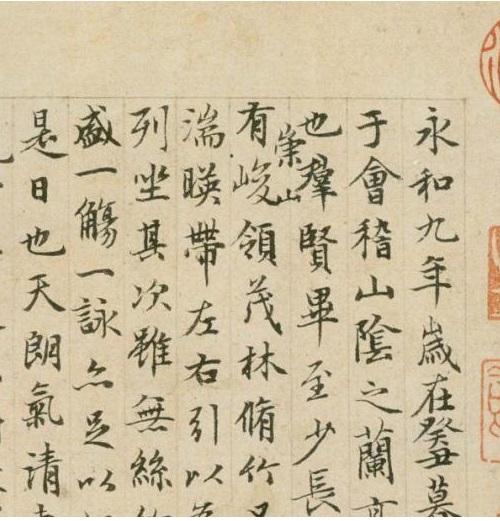 永和九年歲在癸丑暮
于會稽山陰之蘭亭
也羣賢畢至少長
有崇山峻領茂林脩竹
湍暎帶左右引以
列坐其次雖無絲
盛一觴一詠亦足以
是日也天朗氣清